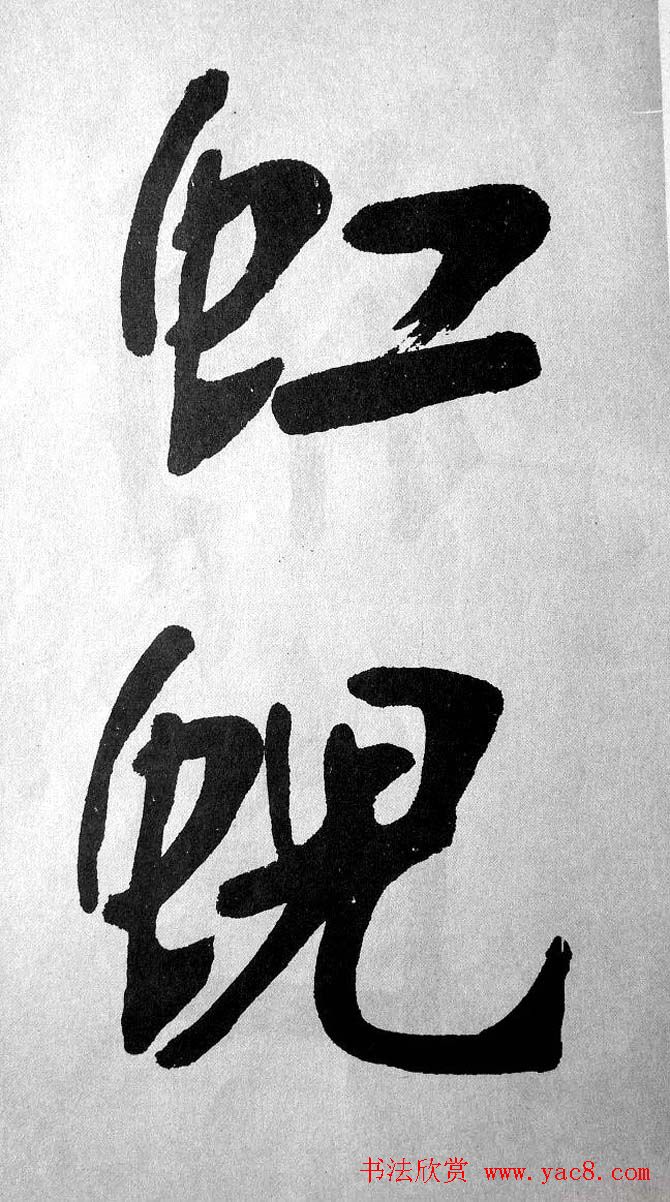 虹
蜺
书法欣赏 www.yac8.com